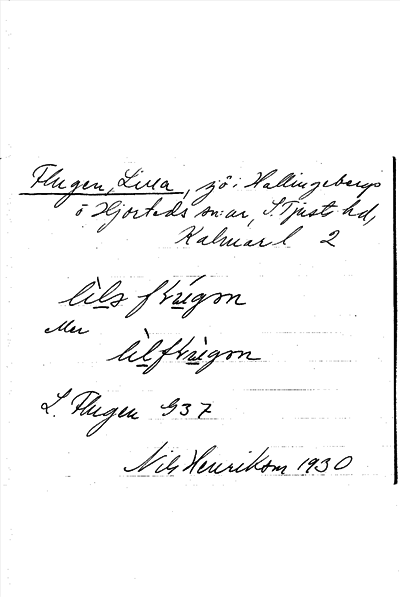 Flugen, Lilla, sjö i Hallingebergs
o Hjorteds sn:ar, S. Tjusts hd,
Kalmar l. 2
lils flugon
eller
lilflugon
L. Flugen G37
Nils Henrikson 1930